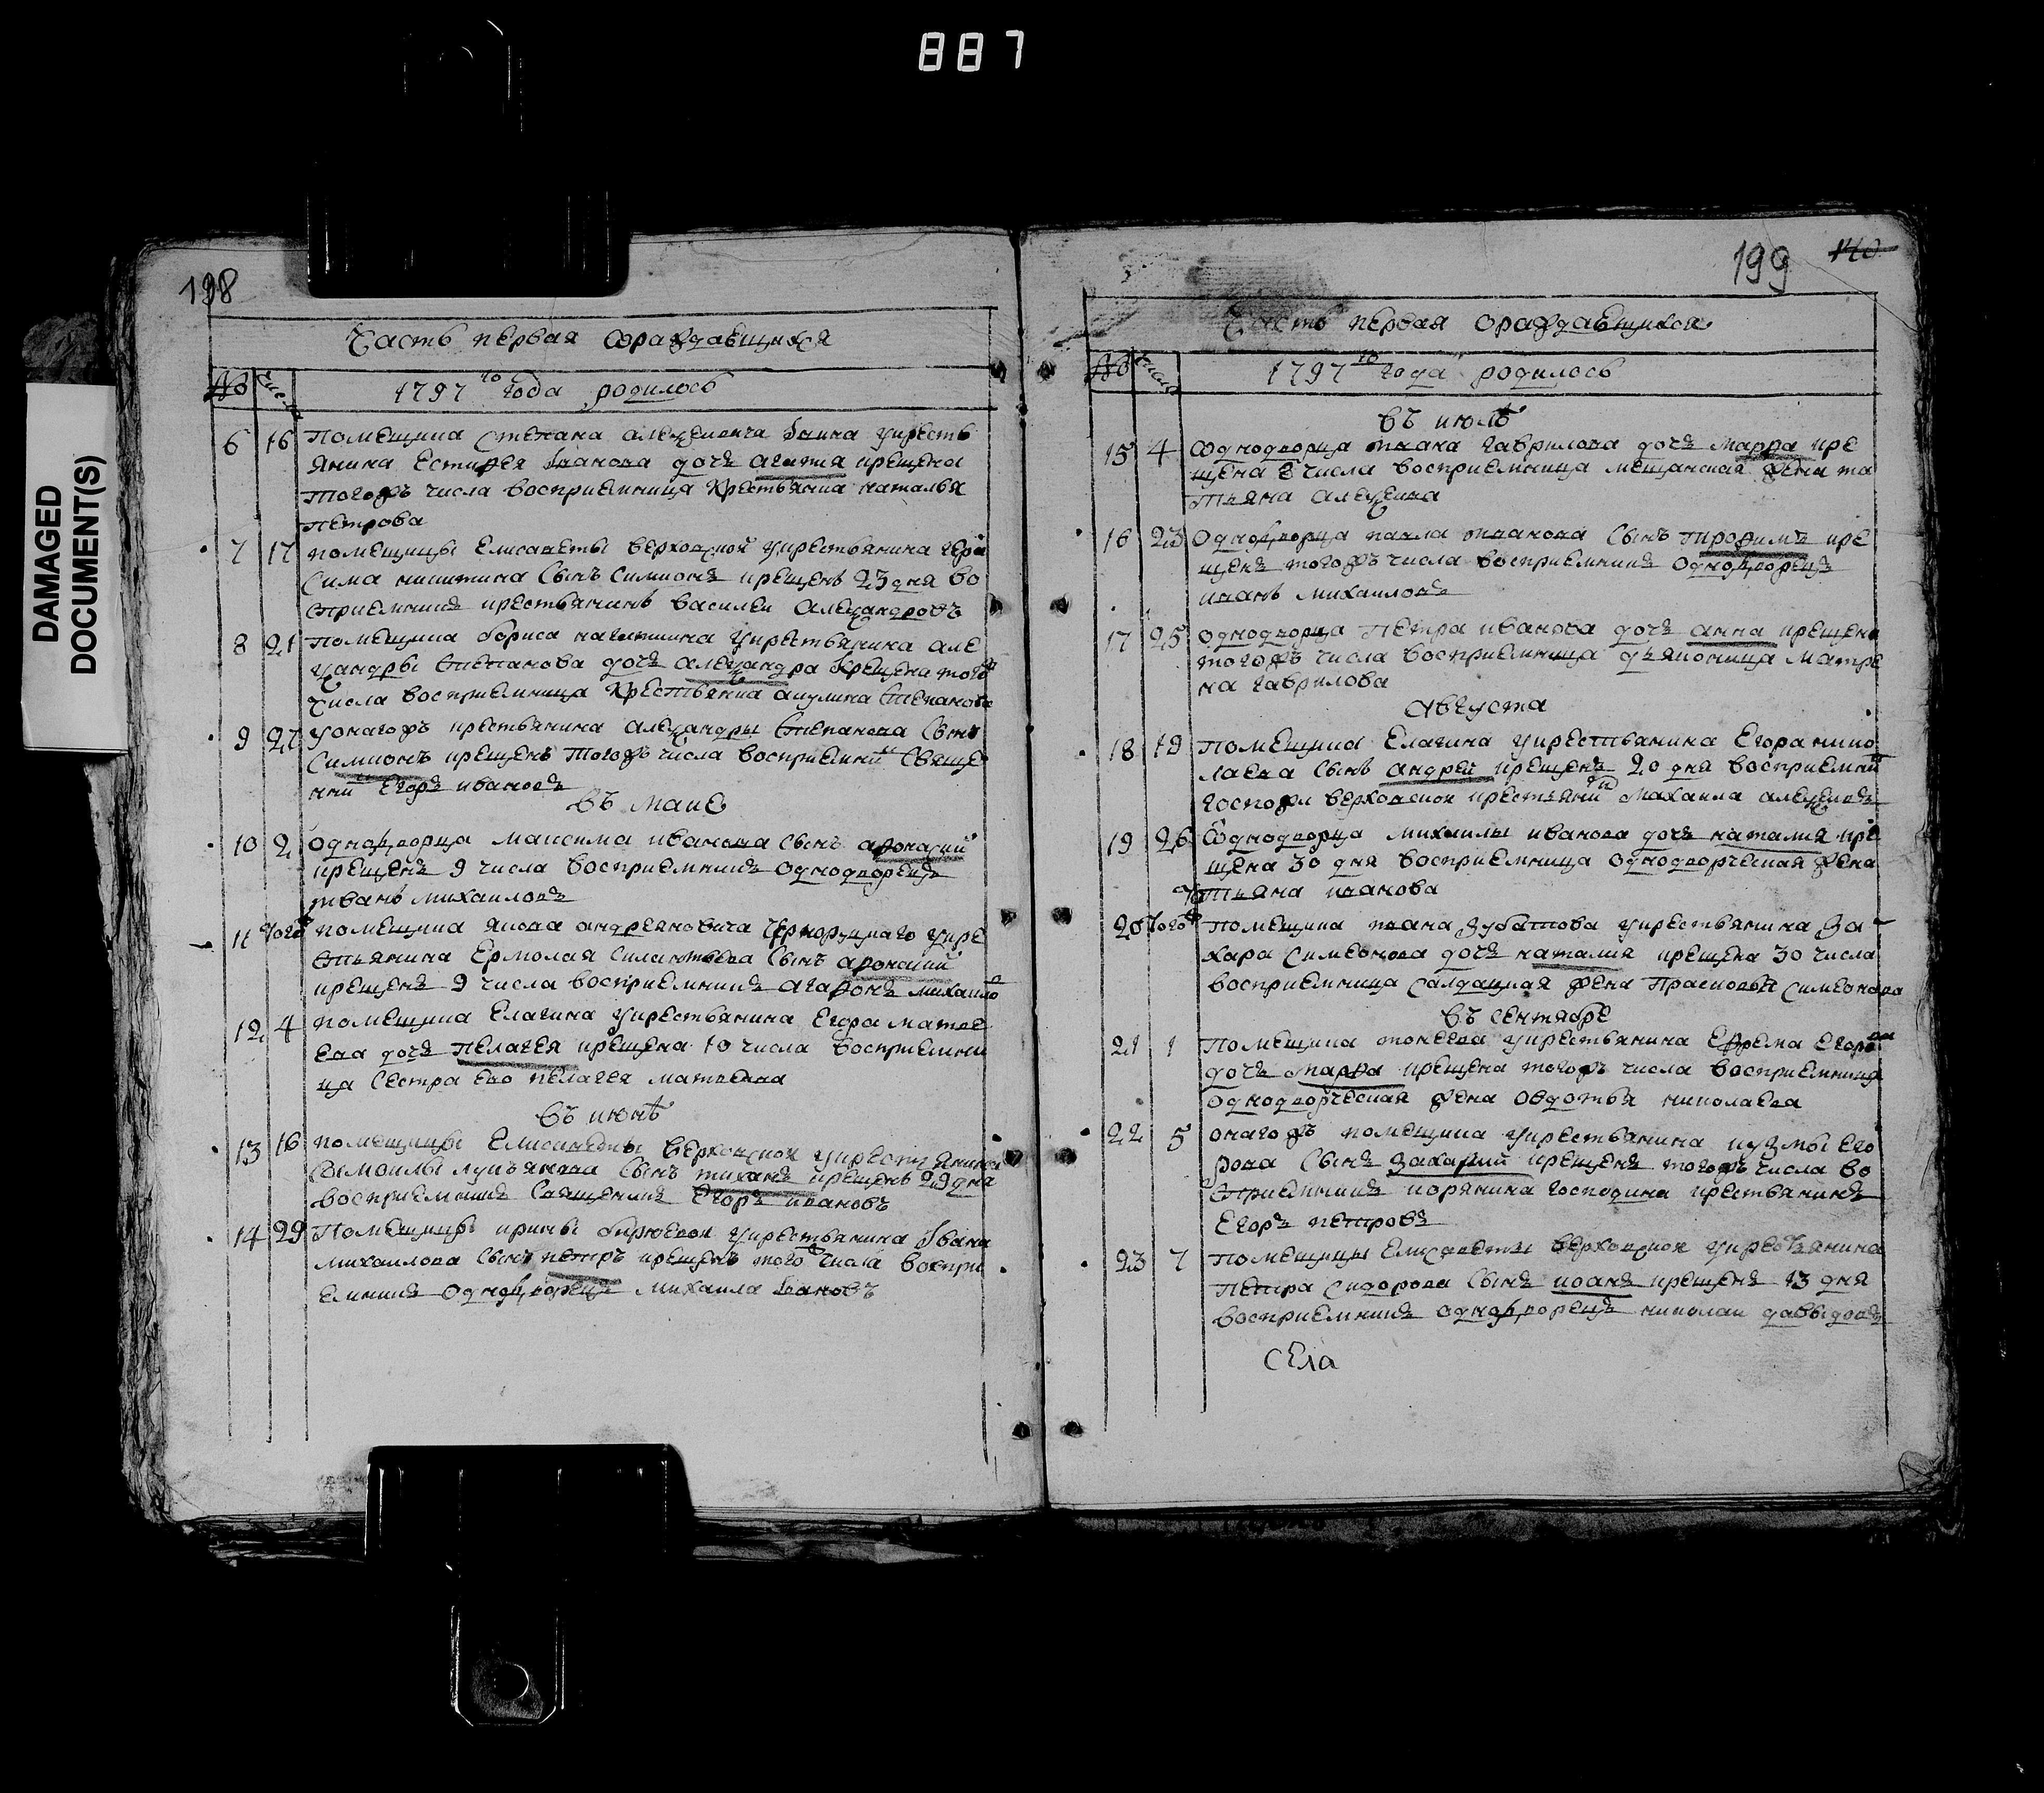 887
DAMAGED
DOCUMENT(S)
198
Часть первая ораждавщихся
№ Число
1797го года родилось
6 16 Помещика Степана алеѯиевича укресть
янина Естифея Иванова дочь агафия крещена
тогожъ числа восприемница крестьянка наталья
петрова
7 17 помещицы Елисаветы верховской укрестьянина гера
сима никитина сынъ симионъ крещенъ 23 дня во
сприемникъ крестьянинъ василеи алеѯандровъ
8 21 помещика бориса укрестьянина але
ѯандры степанова дочь алеѯандра крещена тогож
числа восприемница крестьянка акулина степанова
9 27 уонагожъ крестьянина алеѯандры степанова сынъ
симионъ крещенъ тогожъ числа восприемникъ свяще
нникъ Егоръ ивановъ
въ маие
10 2 однодворца максима иванова сынъ афонасий
крещенъ 9 числа восприемникъ однодворецъ
иванъ михаиловъ
11 того помещика якова андреяновича укре
стьянина Ермолая силантьева сынъ афонасий
крещенъ 9 числа восприемникъ агафонъ михаило
12 4 помещика Елагина укрестьянина Егора матве
ева дочь пелагея крещена 10 числа восприемни
ца сестра ево пелагея матвеева
въ июнѣ
13 16 помещицы Елисаветы верховской укрестьянина
самоилы лукьянова сынъ тихонъ крещенъ 29 дня
восприемникъ священникъ Егоръ ивановъ
14 29 Помещицы ирины бирюевои укрестьянина Ивана
михаилова сынъ петръ крещенъ того числа воспри
емникъ однодворецъ михаила Ивановъ
199 140
Часть первая ораждавщихся
№ Число
1797го года родилось
въ июлѣ
15 4 однодворца ивана гаврилова дочь марфа кре
щена 8 числа восприемница мещанская жена та
тьяна алеѯеива
16 23 однодворца павла иванова сынъ трофимъ кре
щенъ тогожъ числа восприемникъ однодворецъ
иванъ михаиловъ
17 25 однодворца Петра иванова дочь анна крещена
тогожъ числа восприемница дьяконица матре
на гаврилова
августа
18 19 помещика Елагина укрестьянина Егора нико
лаева сынъ андрей крещенъ 20 дня восприемни
госпожи верховской крестьяни михаила алеѯиевъ
19 26 однодворца михаилы иванова дочь наталия кре
щена 30 дня восприемница однодворческая жена
татьяна иванова
20 тогож помещика ивана зубатова укрестьянина за
хара симеонова дочь наталия крещена 30 числа
восприемница салдацкая жена Прасковья симеонова
въ сентябре
21 1 помещика укрестьянина Ефрема Егорова
дочь марфа крещена тогожъ числа восприемница
однодворческая жена овдотья николаева
22 5 онагожъ помещика укрестьянина кузмы Его
рова сынъ захарий крещенъ тогожъ числа во
сприемникъ корякина господина крестьянинъ
Егоръ петровъ
23 7 помещицы Елисаветы верховской укрестьянина
Петра сидорова сынъ иоанъ крещенъ 13 дня
восприемникъ однодворецъ николаи давыдовъ
села